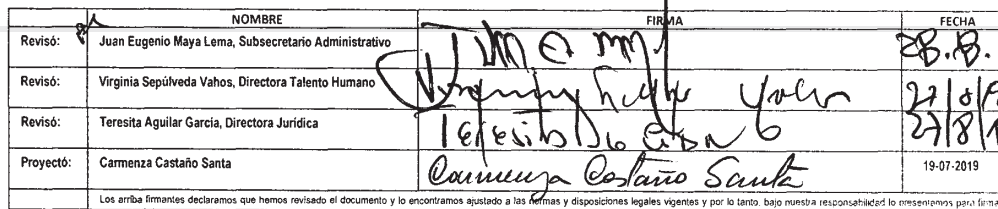 NOMBRE FIRMA FECHA
Revisó: Juan Eugenio Maya Lema, Subsecretario Administrativo
Revisó: Virginia Sepúlveda Vahos, Directora Talento Humano
Revisó: Teresita Aguilar García, Directora Jurídica 27/8/1
Proyectó: Carmenza Castaño Santa Carmenza Castaño Santa 19-07-2019
Los arriba firmantes declaramos que hemos revisado el documento y lo encontramos ajustado a las normas y disposiciones legales vigentes y por lo tanto, bajo nuestra responsabilidad lo presentamos para firma